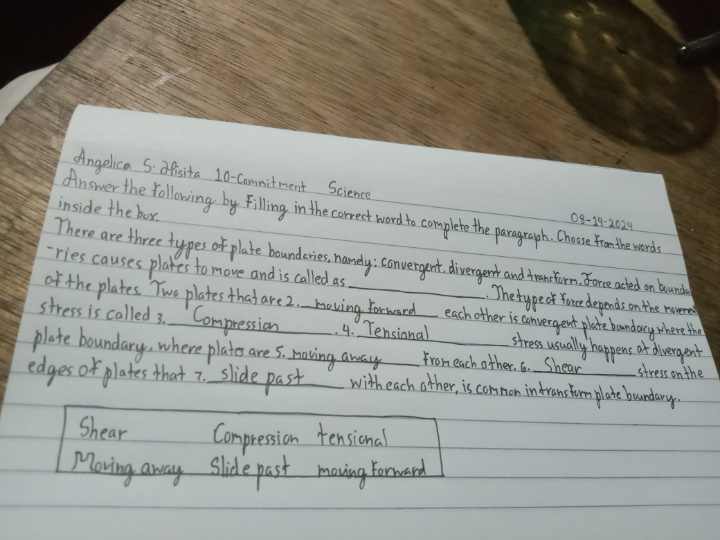 Angelica S. Afisita 10-Commitment Science 09-19-2024
Answer the following by filling in the correct word to complete the paragraph. Choose from the words
inside the box.
There are three types of plate boundaries, namely: convergent, divergent and transform. Force acted on bounda
-ries causes plates to move and is called as ________. The type of force depends on the
of the plates. Two plates that are 2. moving forward each other is convergent plate boundary where the
stress is called 3. Compression. 4. Tensional stress usually happens at divergent
plate boundary, where plate are 5. moving away from each other. 6. Shear stress on the
edges of plates that 7. slide past with each other, is common in transform plate boundary.
Shear Compression tensional
Moving away Slide past moving forward